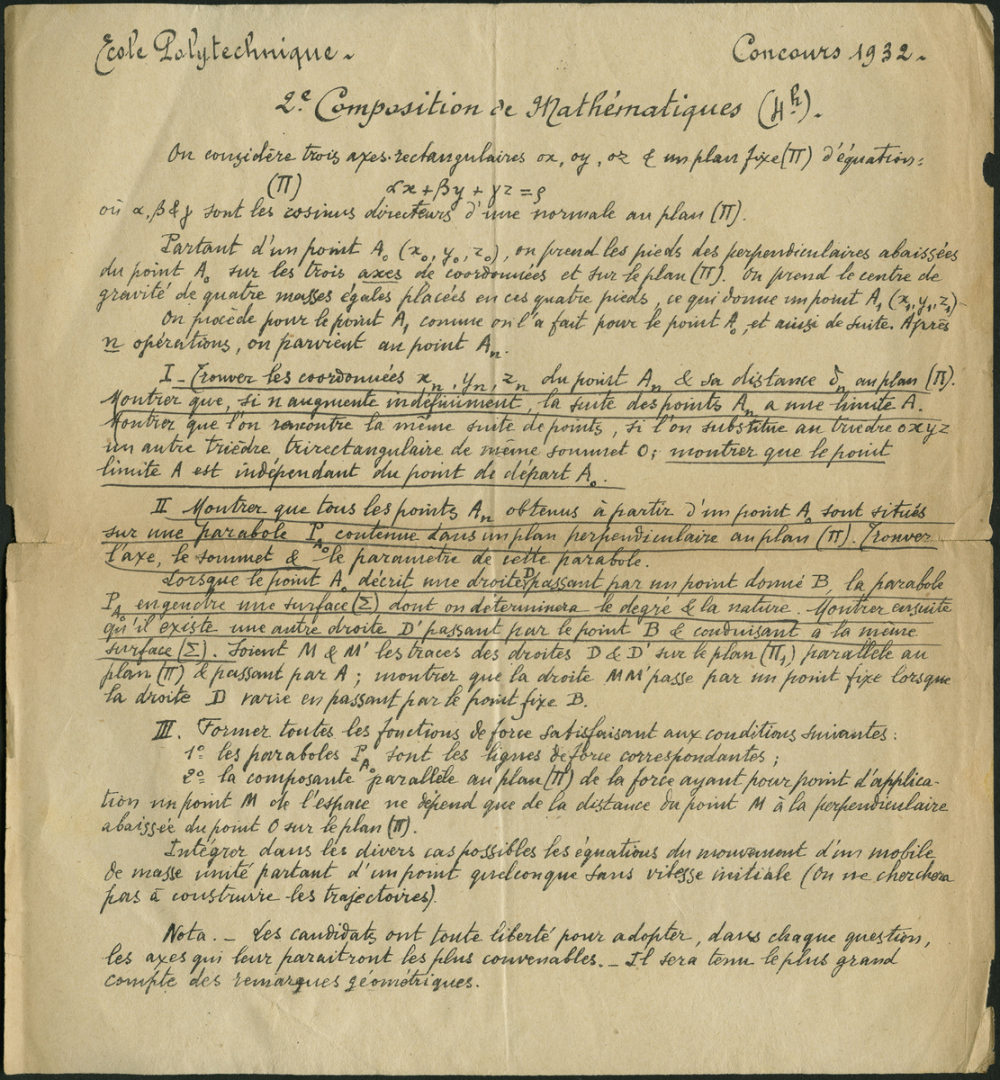 Ecole Polytechnique.
Concours 1932.
2.e Composition de Mathématiques (4h).
On considère trois axes rectangulaires ox, oy, oz & un plan fixe (Π) d'équation:
(Π) αx + βy + γz = ρ
où α, β & γ sont les cosinus directeurs d'une normale au plan (Π).
Partant d'un point A₀ (x₀, y₀, z₀), on prend les pieds des perpendiculaires abaissées
du point A₀ sur les trois axes de coordonnées et sur le plan (Π). On prend le centre de
gravité de quatre masses égales placées en ces quatre pieds, ce qui donne un point A₁ (x₁, y₁, z₁)
On procède pour le point A₁ comme on l'a fait pour le point A₀, et ainsi de suite. Après
n opérations, on parvient au point Aₙ.
I - Trouver les coordonnées xₙ, yₙ, zₙ du point Aₙ & sa distance δₙ au plan (Π).
Montrer que, si n augmente indéfiniment, la suite des points Aₙ a une limite A.
Montrer que l'on rencontre la même suite de points, si l'on substitue au trièdre oxyz
un autre trièdre trirectangulaire de même sommet O; montrer que le point
limite A est indépendant du point de départ A₀.
II Montrer que tous les points Aₙ obtenus à partir d'un point A₀ sont situés
sur une parabole P_A₀ contenue dans un plan perpendiculaire au plan (Π). Trouver
l'axe, le sommet & le paramètre de cette parabole.
Lorsque le point A₀ décrit une droite D passant par un point donné B, la parabole
P_A₀ engendre une surface (Σ) dont on déterminera le degré & la nature. Montrer ensuite
qu'il existe une autre droite D' passant par le point B & conduisant à la même
surface (Σ). Soient M & M' les traces des droites D & D' sur le plan (Π₁) parallèle au
plan (Π) & passant par A; montrer que la droite MM' passe par un point fixe lorsque
la droite D varie en passant par le point fixe B.
III. Former toutes les fonctions de force satisfaisant aux conditions suivantes:
1º les paraboles P_A₀ sont les lignes de force correspondantes;
2º la composante parallèle au plan (Π) de la force ayant pour point d'applica-
tion un point M de l'espace ne dépend que de la distance du point M à la perpendiculaire
abaissée du point O sur le plan (Π).
Intégrer dans les divers cas possibles les équations du mouvement d'un mobile
de masse unité partant d'un point quelconque sans vitesse initiale (On ne cherchera
pas à construire les trajectoires).
Nota. - Les candidats ont toute liberté pour adopter, dans chaque question,
les axes qui leur paraitront les plus convenables. - Il sera tenu le plus grand
compte des remarques géométriques.